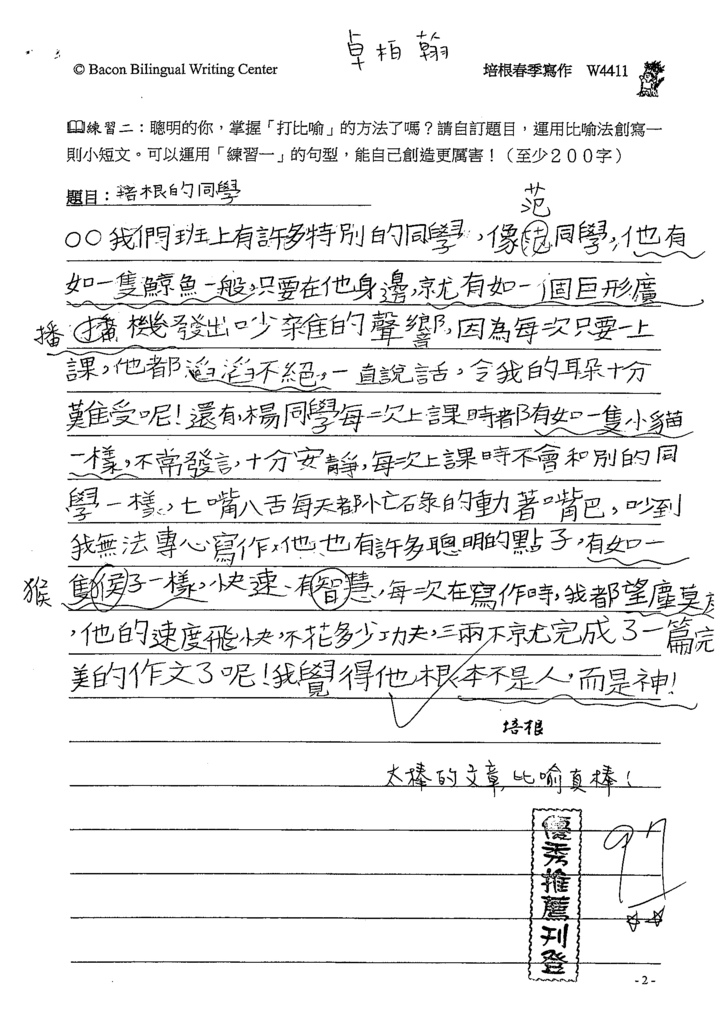 卓柏翰
© Bacon Bilingual Writing Center 培根春季寫作 W4411
練習二：聰明的你，掌握「打比喻」的方法了嗎？請自訂題目，運用比喻法創寫一
則小短文。可以運用「練習一」的句型，能自己創造更厲害！（至少２００字）
題目：培根的同學
范
○○我們班上有許多特別的同學，像范同學，他有
如一隻鯨魚一般，只要在他身邊，就有如一個巨形廣
播 播機發出吵雜的聲響，因為每次只要一上
課，他都滔滔不絕，一直說話，令我的耳朵十分
難受呢！還有，楊同學每一次上課時都有如一隻小貓
一樣，不常發言，十分安靜，每次上課時不會和別的同
學一樣，七嘴八舌每天都忙碌的動著嘴巴，吵到
我無法專心寫作，他也有許多聰明的點子，有如一
猴 隻猴子一樣，快速、有智慧，每次在寫作時，我都望塵莫及
，他的速度飛快，不花多少功夫，三兩下就完成了一篇完
美的作文了呢！我覺得他根本不是人，而是神！
培根
太棒的文章，比喻真棒！
優秀推薦刊登
97
-2-